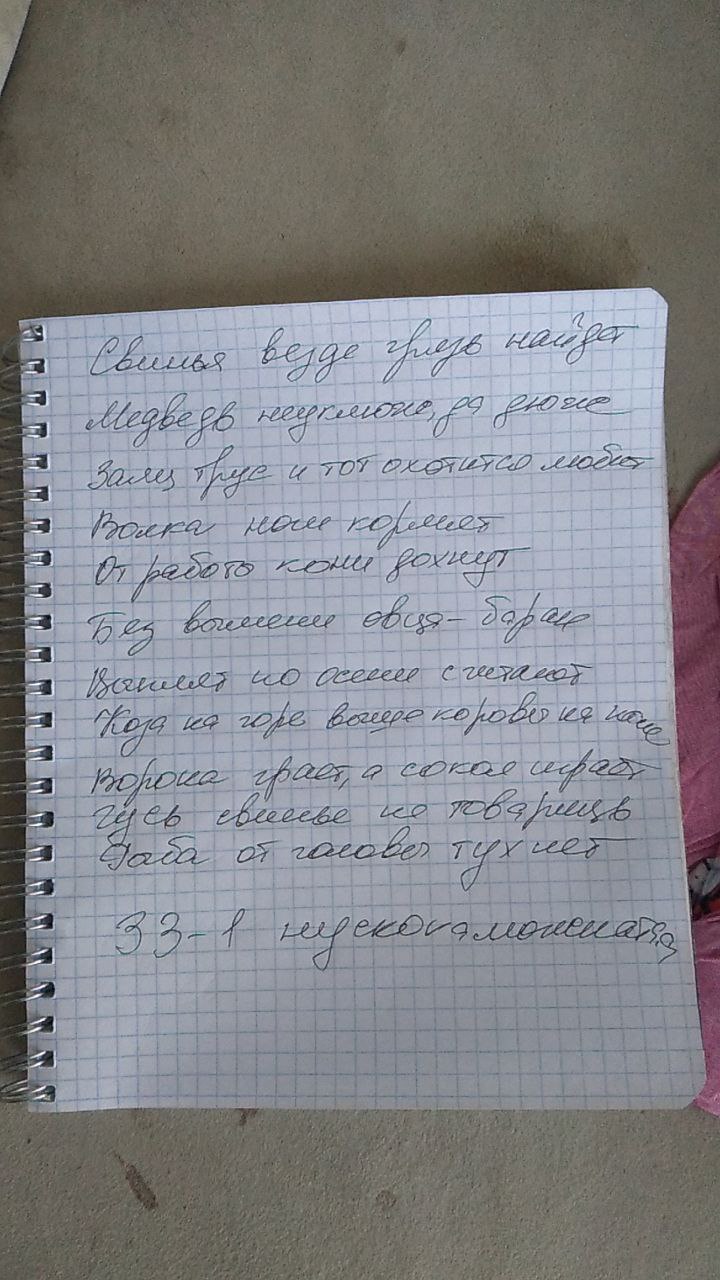 Свинья везде грязь найдет
Медведь неуклюж, да дюж
Заяц трус и тот охотится любит
Волка ноги кормят
От работы кони дохнут
Без вымени овца - баран
Цыплят по осени считают
Коза на горе выше коровы на поле
Ворона грает, а сокол играет
Гусь свинье не товарищ
Рыба от головы тухнет
33-1